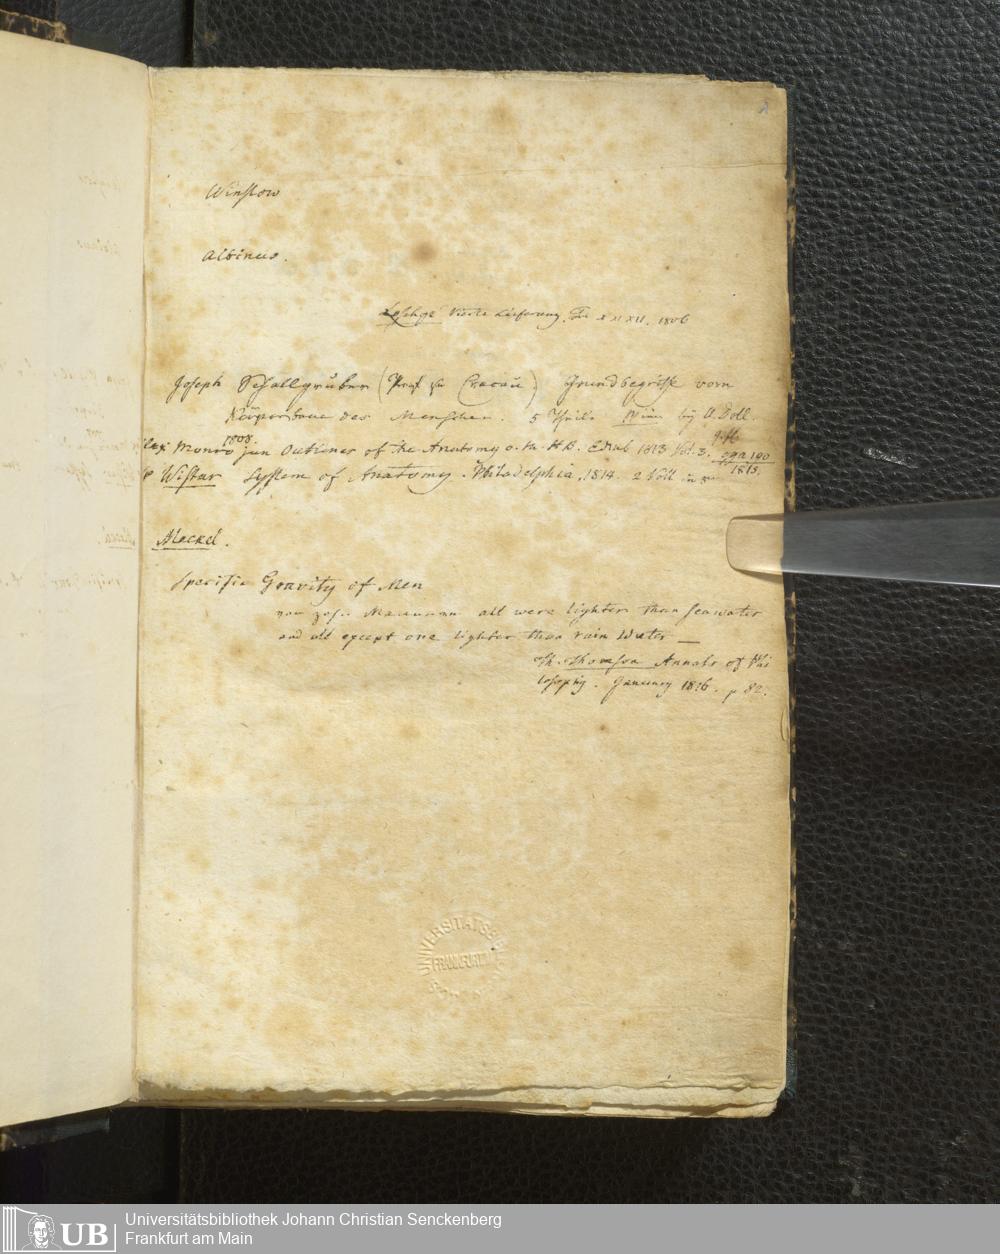 Winslow
Albinus.
Loschge Vierte Lieferung. X XI XII. 1806
Joseph Schallgruber (Prof zu Cracau) Grundbegriffe vom
Körperbaue des Menschen. 5 Theile Wien by A. Doll.
1808.
Alex Monro jun Outlines of the Anatomy o. th. H B. Edinb 1813 Vol. 3.
1815.
Wistar System of Anatomy. Philadelphia, 1814. 2 Voll in 8
Meckel.
Specific Gravity of Men
all were lighter than seawater
and all except one lighter than rain Water —
Th. Thomson Annals of Phi
losophy. January 1816. p 82.
UNIVERSITÄTSBIBLIOTHEK
FRANKFURT
UB
Universitätsbibliothek Johann Christian Senckenberg
Frankfurt am Main